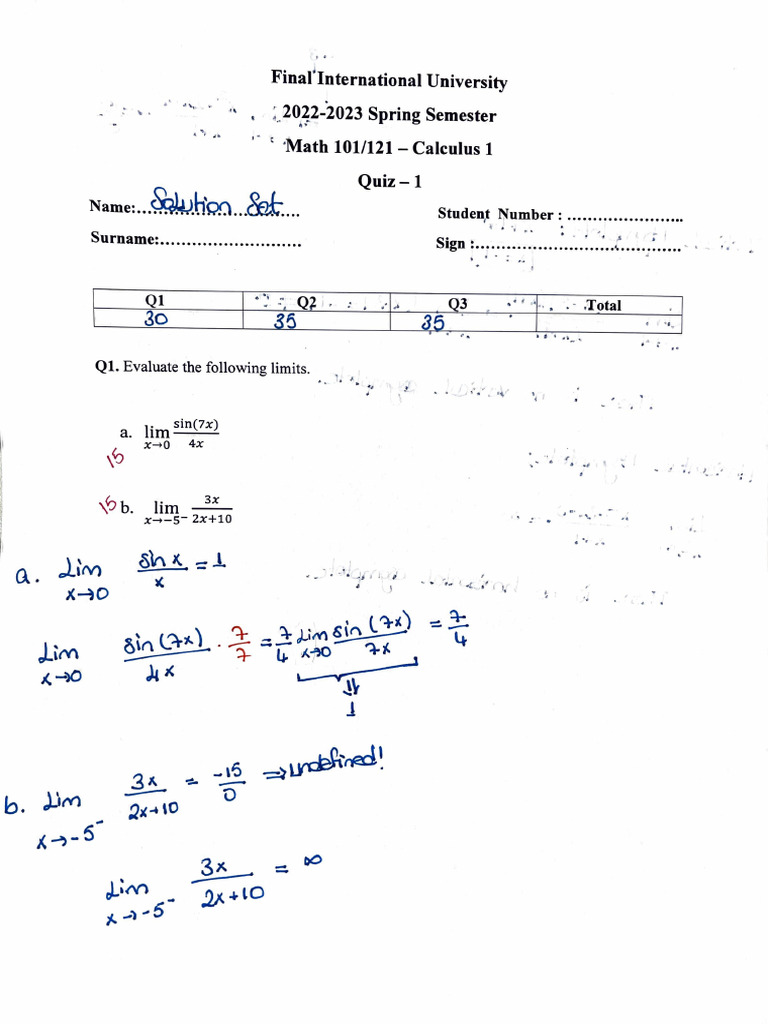 Final International University
2022-2023 Spring Semester
Math 101/121 – Calculus 1
Quiz – 1
Name:.............................. Solution Set
Student Number : ......................
Surname:...........................
Sign :........................................
Q1 Q2 Q3 Total
30 35 35
Q1. Evaluate the following limits.
a. lim x→0 sin(7x)/4x
15
15 b. lim x→−5⁻ 3x/2x+10
a. Lim x→0 sin x/x = 1
Lim x→0 sin(7x)/4x · 7/7 = 7/4 Lim x→0 sin(7x)/7x = 7/4
⇓
1
b. Lim x→-5⁻ 3x/2x+10 = -15/0 ⇒ Undefined!
Lim x→-5⁻ 3x/2x+10 = ∞